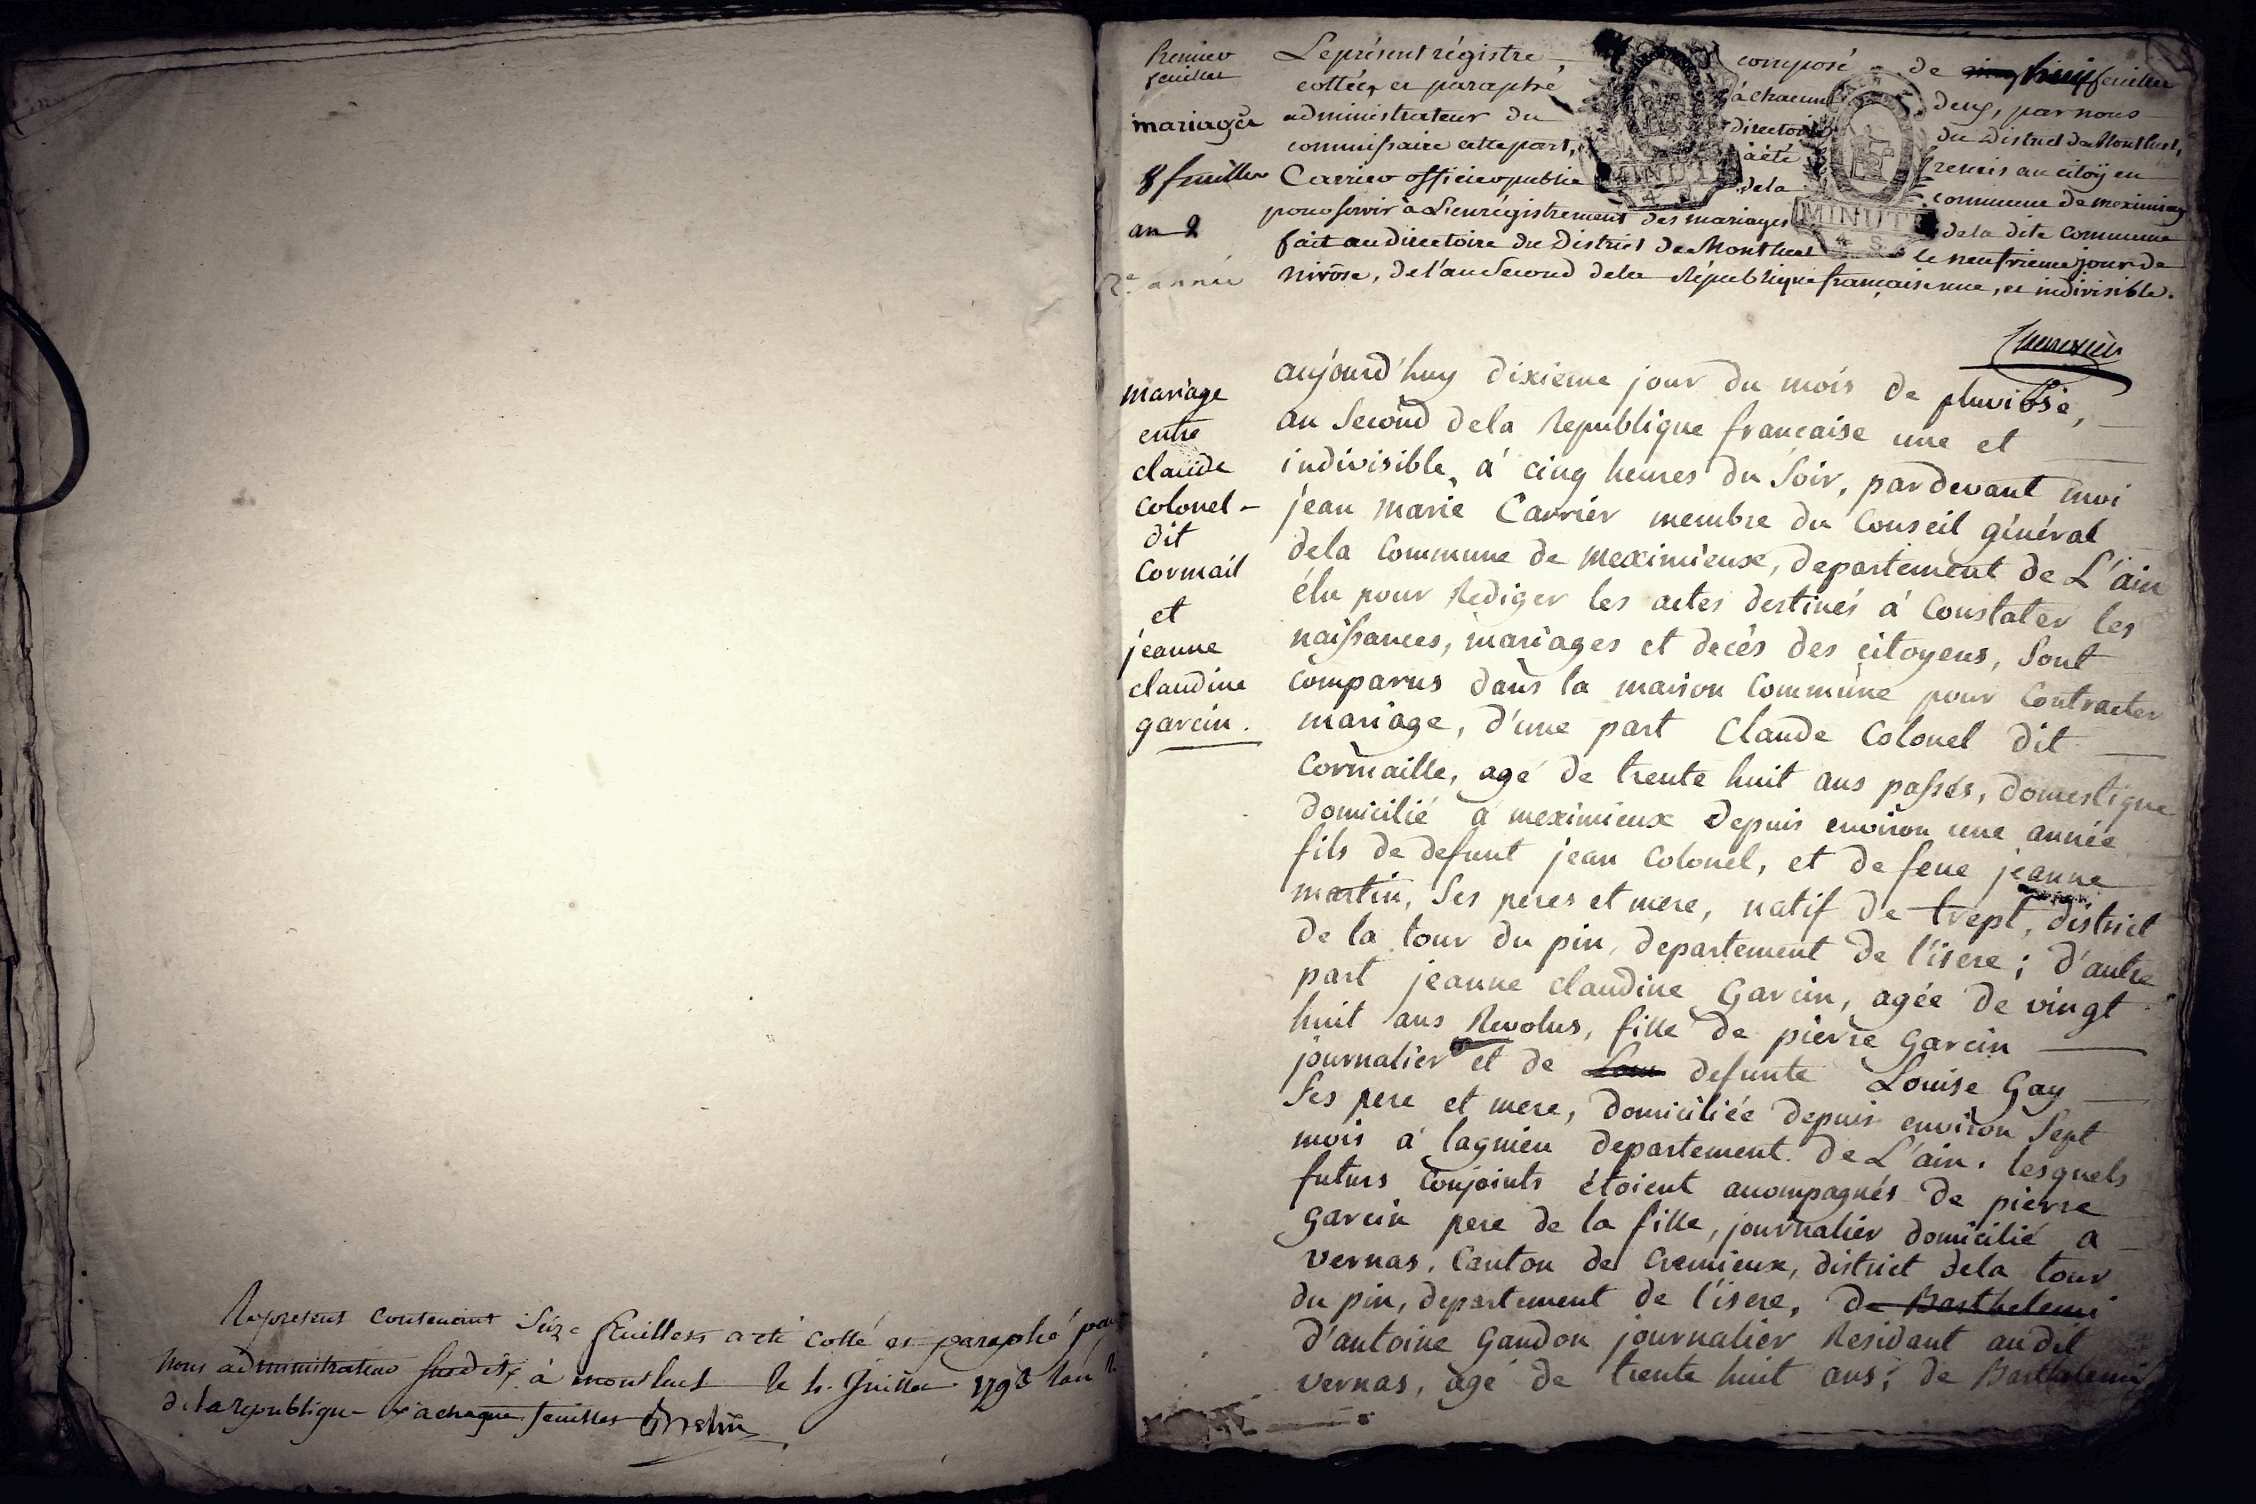 Le present contenant Seize feuillets a eté cotté et paraphé par
Nous administrateur susdit, à montluel le 4. Juillet 1793 l'an 2
de la republique à chaque feuillet
Premier
feuillet
mariages
8 feuillets
an 2
2e. année
Le présent régistre composé de huit feuillets
cottés, et paraphé à chacun deux, par nous
administrateur du directoire du District de Montluel,
commissaire cette part, à été remis au citoÿen
Carrier officier public de la commune de meximieux
pour servir à L'enrégistrement des mariages de la dite commune
fait au directoire du District de Montluel le neufvieme jour de
nivôse, de l'an Second de la République françaisenne, et indivisible.
mariage
entre
claude
colonel -
dit
Cormail
et
jeanne
claudine
garcin.
aujourd'huy dixieme jour du mois de pluviôse,
an Second dela Republique francaise une et
indivisible, à cinq heures du Soir, pardevant moi
jean marie Carrier membre du Conseil général
dela Commune de meximieux, departement de L'ain
élu pour Rediger les actes destinés à Constater les
naissances, mariages et decès des citoyens, Sont
comparus dans la maison Commune pour Contracter
mariage, d'une part Claude Colonel dit
Cormaille, agé de trente huit ans passés, domestique
domicilié à meximieux depuis environ une année
fils de defunt jean Colonel, et de feue jeanne
martin, Ses peres et mere, natif de trept, district
de la tour du pin, departement de l'isere; d'autre
part jeanne claudine Garcin, agée de vingt
huit ans Revolus, fille de pierre Garcin
journalier et de Lou defunte Louise Gay
Ses pere et mere, domiciliée depuis environ Sept
mois à lagnieu departement de L'ain. lesquels
futurs Conjoints étoient acompagnés de pierre
Garcin pere de la fille, journalier domicilié a
vernas, Canton de Cremieux, district dela tour
du pin, departement de l'isere, de Barthelemi
d'antoine Gandon journalier Residant audit
vernas, agé de trente huit ans; de Barthelemi